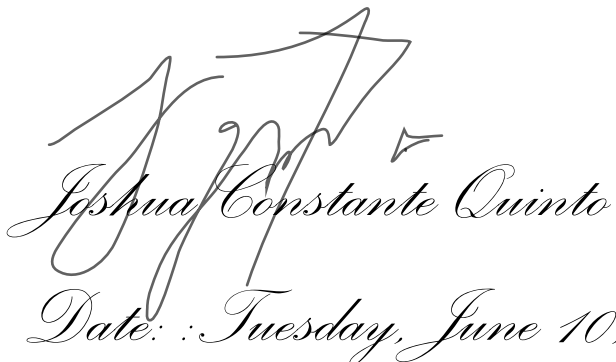 Joshua Constante Quinto
Date: :Tuesday, June 10,